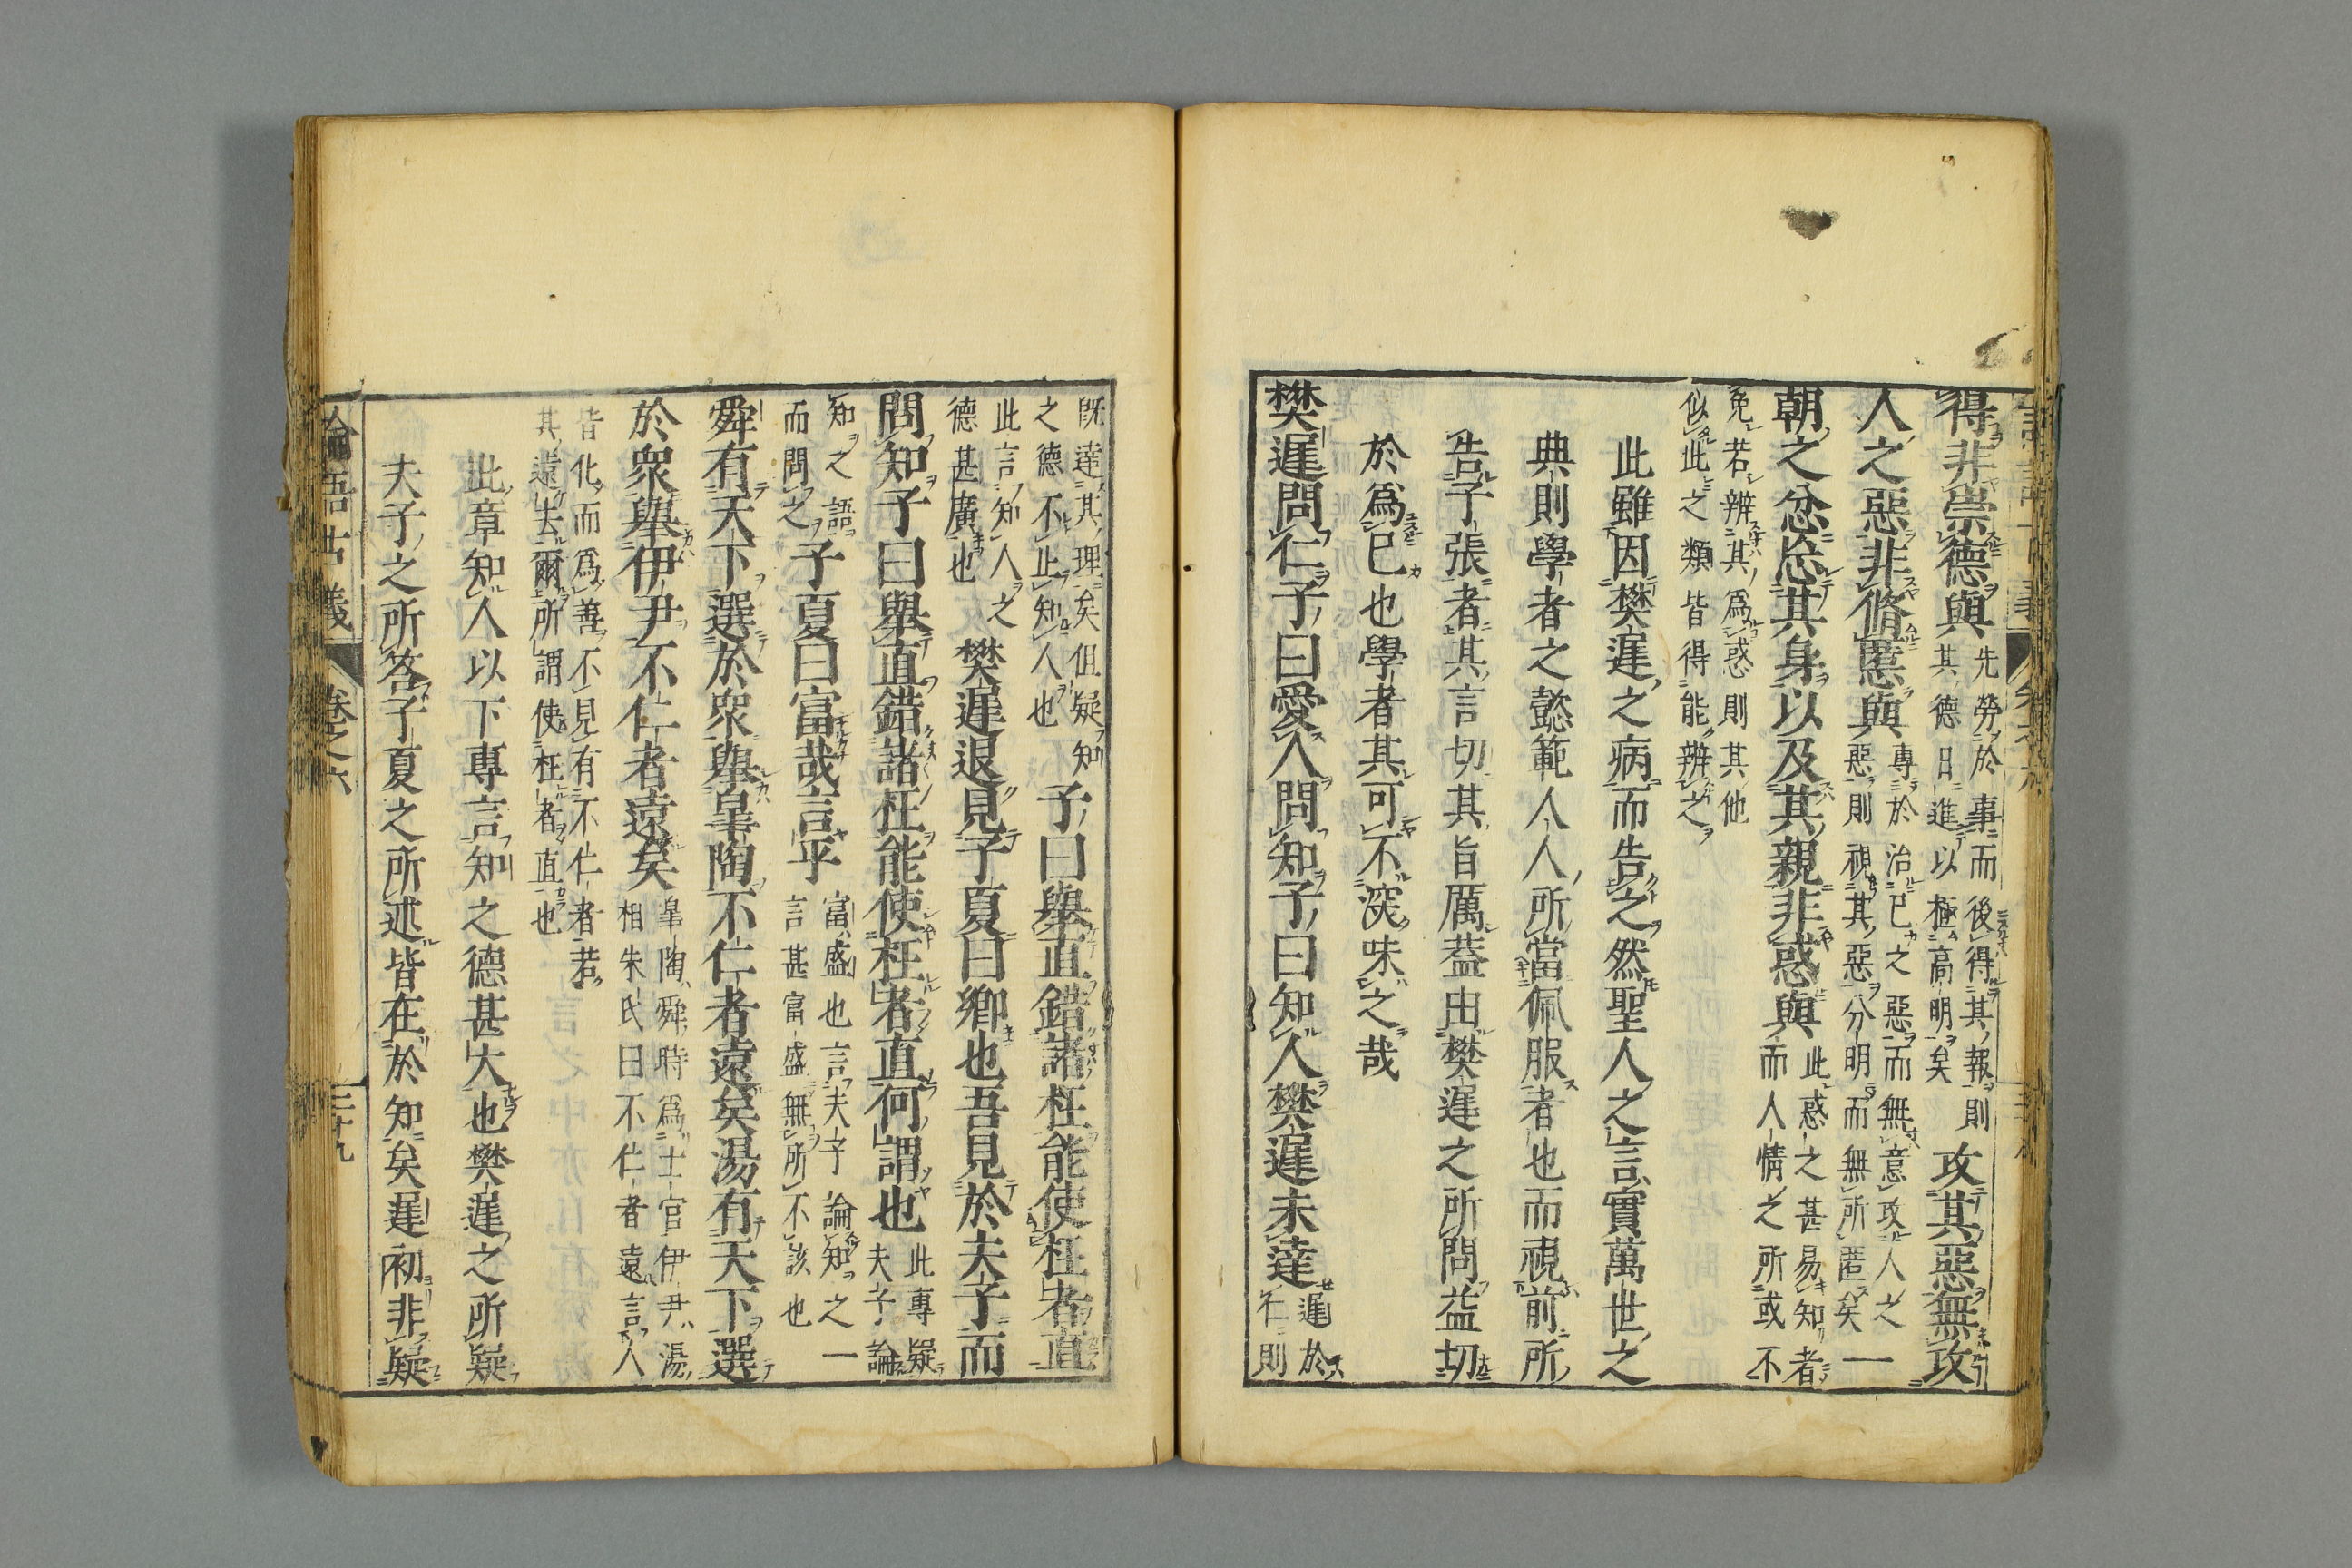 得非崇德與先勞於事而後得其報則其德日進以極高明矣攻其惡無攻
人之惡非脩慝與專於治己之惡而無意攻人之惡則視其惡分明而無所匿矣一
朝之忿忘其身以及其親非惑與此惑之甚易知者而人情之所或不
免若辨其爲惑則其他似此之類皆得能辨之
此雖因樊遲之病而告之然聖人之言實萬世之
典則學者之懿範人人所當佩服者也而視前所
告子張者其言切其旨厲葢由樊遲之所問益切
於爲己也學者其可不深味之哉
樊遲問仁子曰愛人問知子曰知人樊遲未達遲於仁則
既達其理矣但疑知之德不止知人也子曰舉直錯諸枉能使枉者直
此言知人之德甚廣也樊遲退見子夏曰鄉也吾見於夫子而
問知子曰舉直錯諸枉能使枉者直何謂也此專疑夫子論
知之語而問之子夏曰富哉言乎富盛也言夫子論知之一言甚富盛無所不該也
舜有天下選於衆舉皐陶不仁者遠矣湯有天下選
於衆舉伊尹不仁者遠矣皐陶舜時爲士官伊尹湯相朱氏曰不仁者遠言人
皆化而爲善不見有不仁者若其遠去爾所謂使枉者直也
此章知人以下專言知之德甚大也樊遲之所疑
夫子之所答子夏之所述皆在於知矣遲初非疑
論語古義 卷之六 三十九